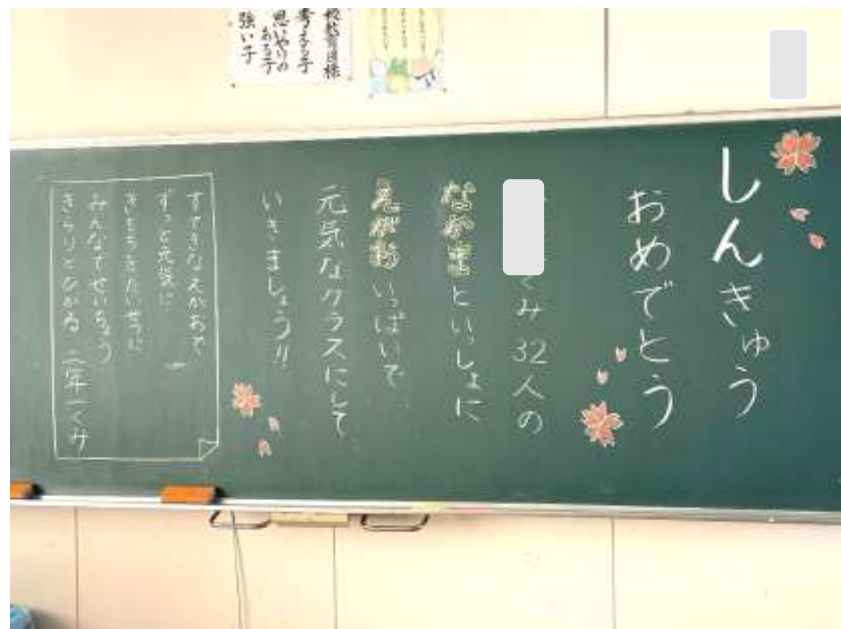 校教育目標
考える子
思いやりの
ある子
強い子
しんきゅう
おめでとう
くみ 32人の
なかまといっしょに
えがおいっぱいで
元気なクラスにして
いきましょう!!
すてきなえがおで
ずっと元気に
きもちをたいせつに
みんなでせいちょう
きらりとひかる 二年一くみ